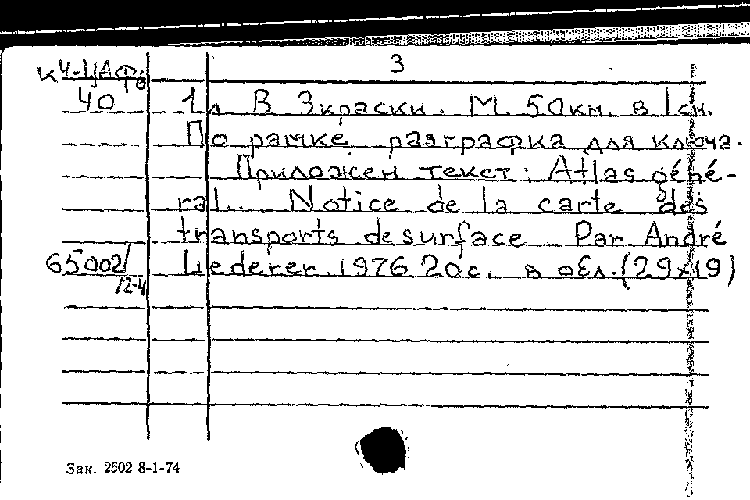 3
К Ч-ЦАфр
40
1 л В 3 краски. М. 50 км. в 1 см.
По рамке разграфка для ключа.
Приложен текст: Atlas géné-
ral. Notice de la carte des
transports de surface Par André
Lederer. 1976 20 с. в обл. (29x19)
65002/
12-4
Зак. 2502 8-1-74